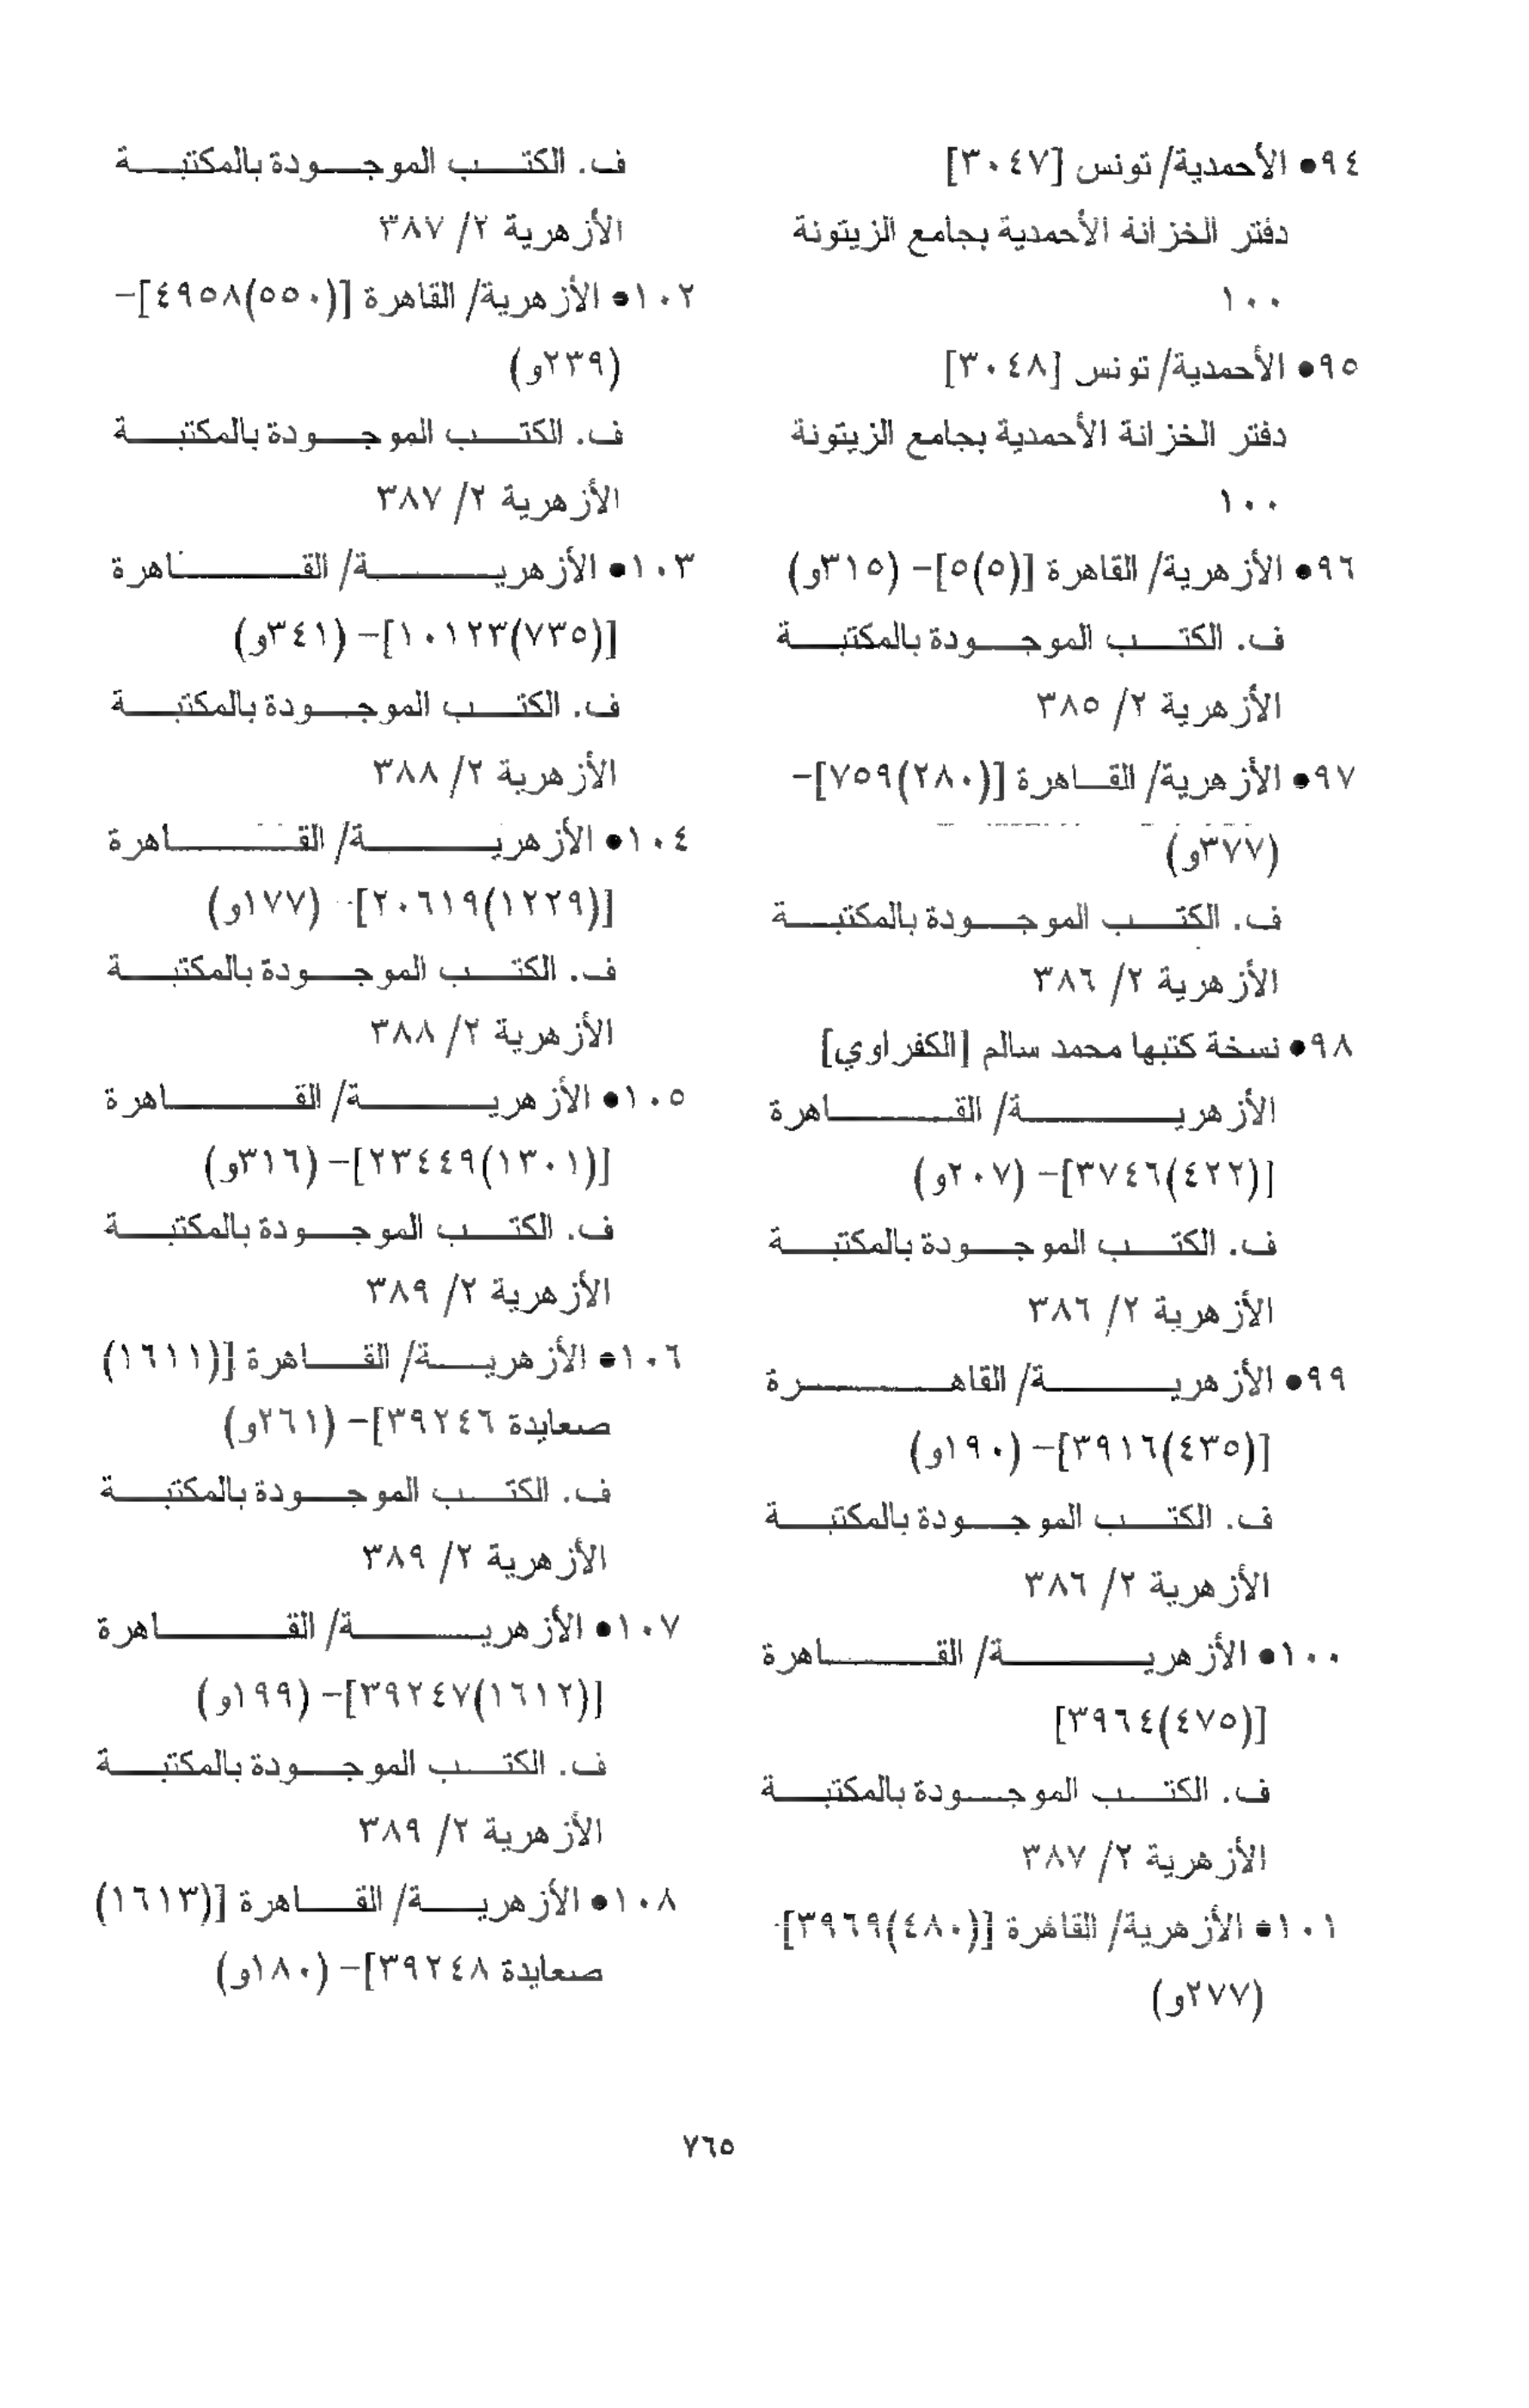 ٩٤● الأحمدية/ تونس [٣٠٤٧]
دفتر الخزانة الأحمدية بجامع الزيتونة
١٠٠
٩٥● الأحمدية/ تونس [٣٠٤٨]
دفتر الخزانة الأحمدية بجامع الزيتونة
١٠٠
٩٦● الأزهرية/ القاهرة [(٥)٥]- (٣١٥و)
ف. الكتب الموجودة بالمكتبة
الأزهرية ٢/ ٣٨٥
٩٧● الأزهرية/ القاهرة [(٢٨٠)٧٥٩]-
(٣٧٧و)
ف. الكتب الموجودة بالمكتبة
الأزهرية ٢/ ٣٨٦
٩٨● نسخة كتبها محمد سالم [الكفراوي]
الأزهرية/ القاهرة
[(٤٢٢)٣٧٤٦]- (٢٠٧و)
ف. الكتب الموجودة بالمكتبة
الأزهرية ٢/ ٣٨٦
٩٩● الأزهرية/ القاهرة
[(٤٣٥)٣٩١٦]- (١٩٠و)
ف. الكتب الموجودة بالمكتبة
الأزهرية ٢/ ٣٨٦
١٠٠● الأزهرية/ القاهرة
[(٤٧٥)٣٩٦٤]
ف. الكتب الموجودة بالمكتبة
الأزهرية ٢/ ٣٨٧
١٠١● الأزهرية/ القاهرة [(٤٨٠)٣٩٦٩]-
(٢٧٧و)
ف. الكتب الموجودة بالمكتبة
الأزهرية ٢/ ٣٨٧
١٠٢● الأزهرية/ القاهرة [(٥٥٠)٤٩٥٨]-
(٢٣٩و)
ف. الكتب الموجودة بالمكتبة
الأزهرية ٢/ ٣٨٧
١٠٣● الأزهرية/ القاهرة
[(٧٣٥)١٠١٢٣]- (٣٤١و)
ف. الكتب الموجودة بالمكتبة
الأزهرية ٢/ ٣٨٨
١٠٤● الأزهرية/ القاهرة
[(١٢٢٩)٢٠٦١٩]- (١٧٧و)
ف. الكتب الموجودة بالمكتبة
الأزهرية ٢/ ٣٨٨
١٠٥● الأزهرية/ القاهرة
[(١٣٠١)٢٣٤٤٩]- (٣١٦و)
ف. الكتب الموجودة بالمكتبة
الأزهرية ٢/ ٣٨٩
١٠٦● الأزهرية/ القاهرة [(١٦١١)
صعايدة ٣٩٢٤٦]- (٢٦١و)
ف. الكتب الموجودة بالمكتبة
الأزهرية ٢/ ٣٨٩
١٠٧● الأزهرية/ القاهرة
[(١٦١٢)٣٩٢٤٧]- (١٩٩و)
ف. الكتب الموجودة بالمكتبة
الأزهرية ٢/ ٣٨٩
١٠٨● الأزهرية/ القاهرة [(١٦١٣)
صعايدة ٣٩٢٤٨]- (١٨٠و)
٧٦٥